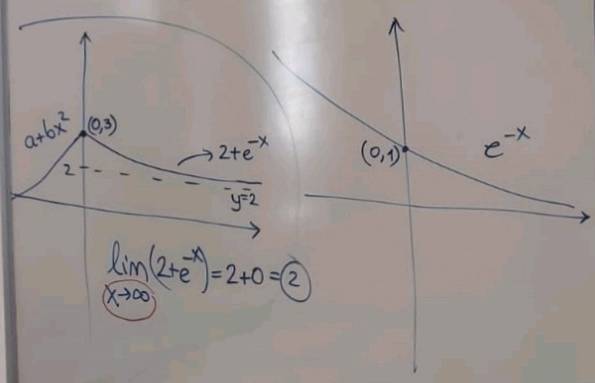 a+bx²
(0,3)
2+e⁻ˣ
2
y=2
lim(2+e⁻ˣ)=2+0=2
x→∞
(0,1)
e⁻ˣ